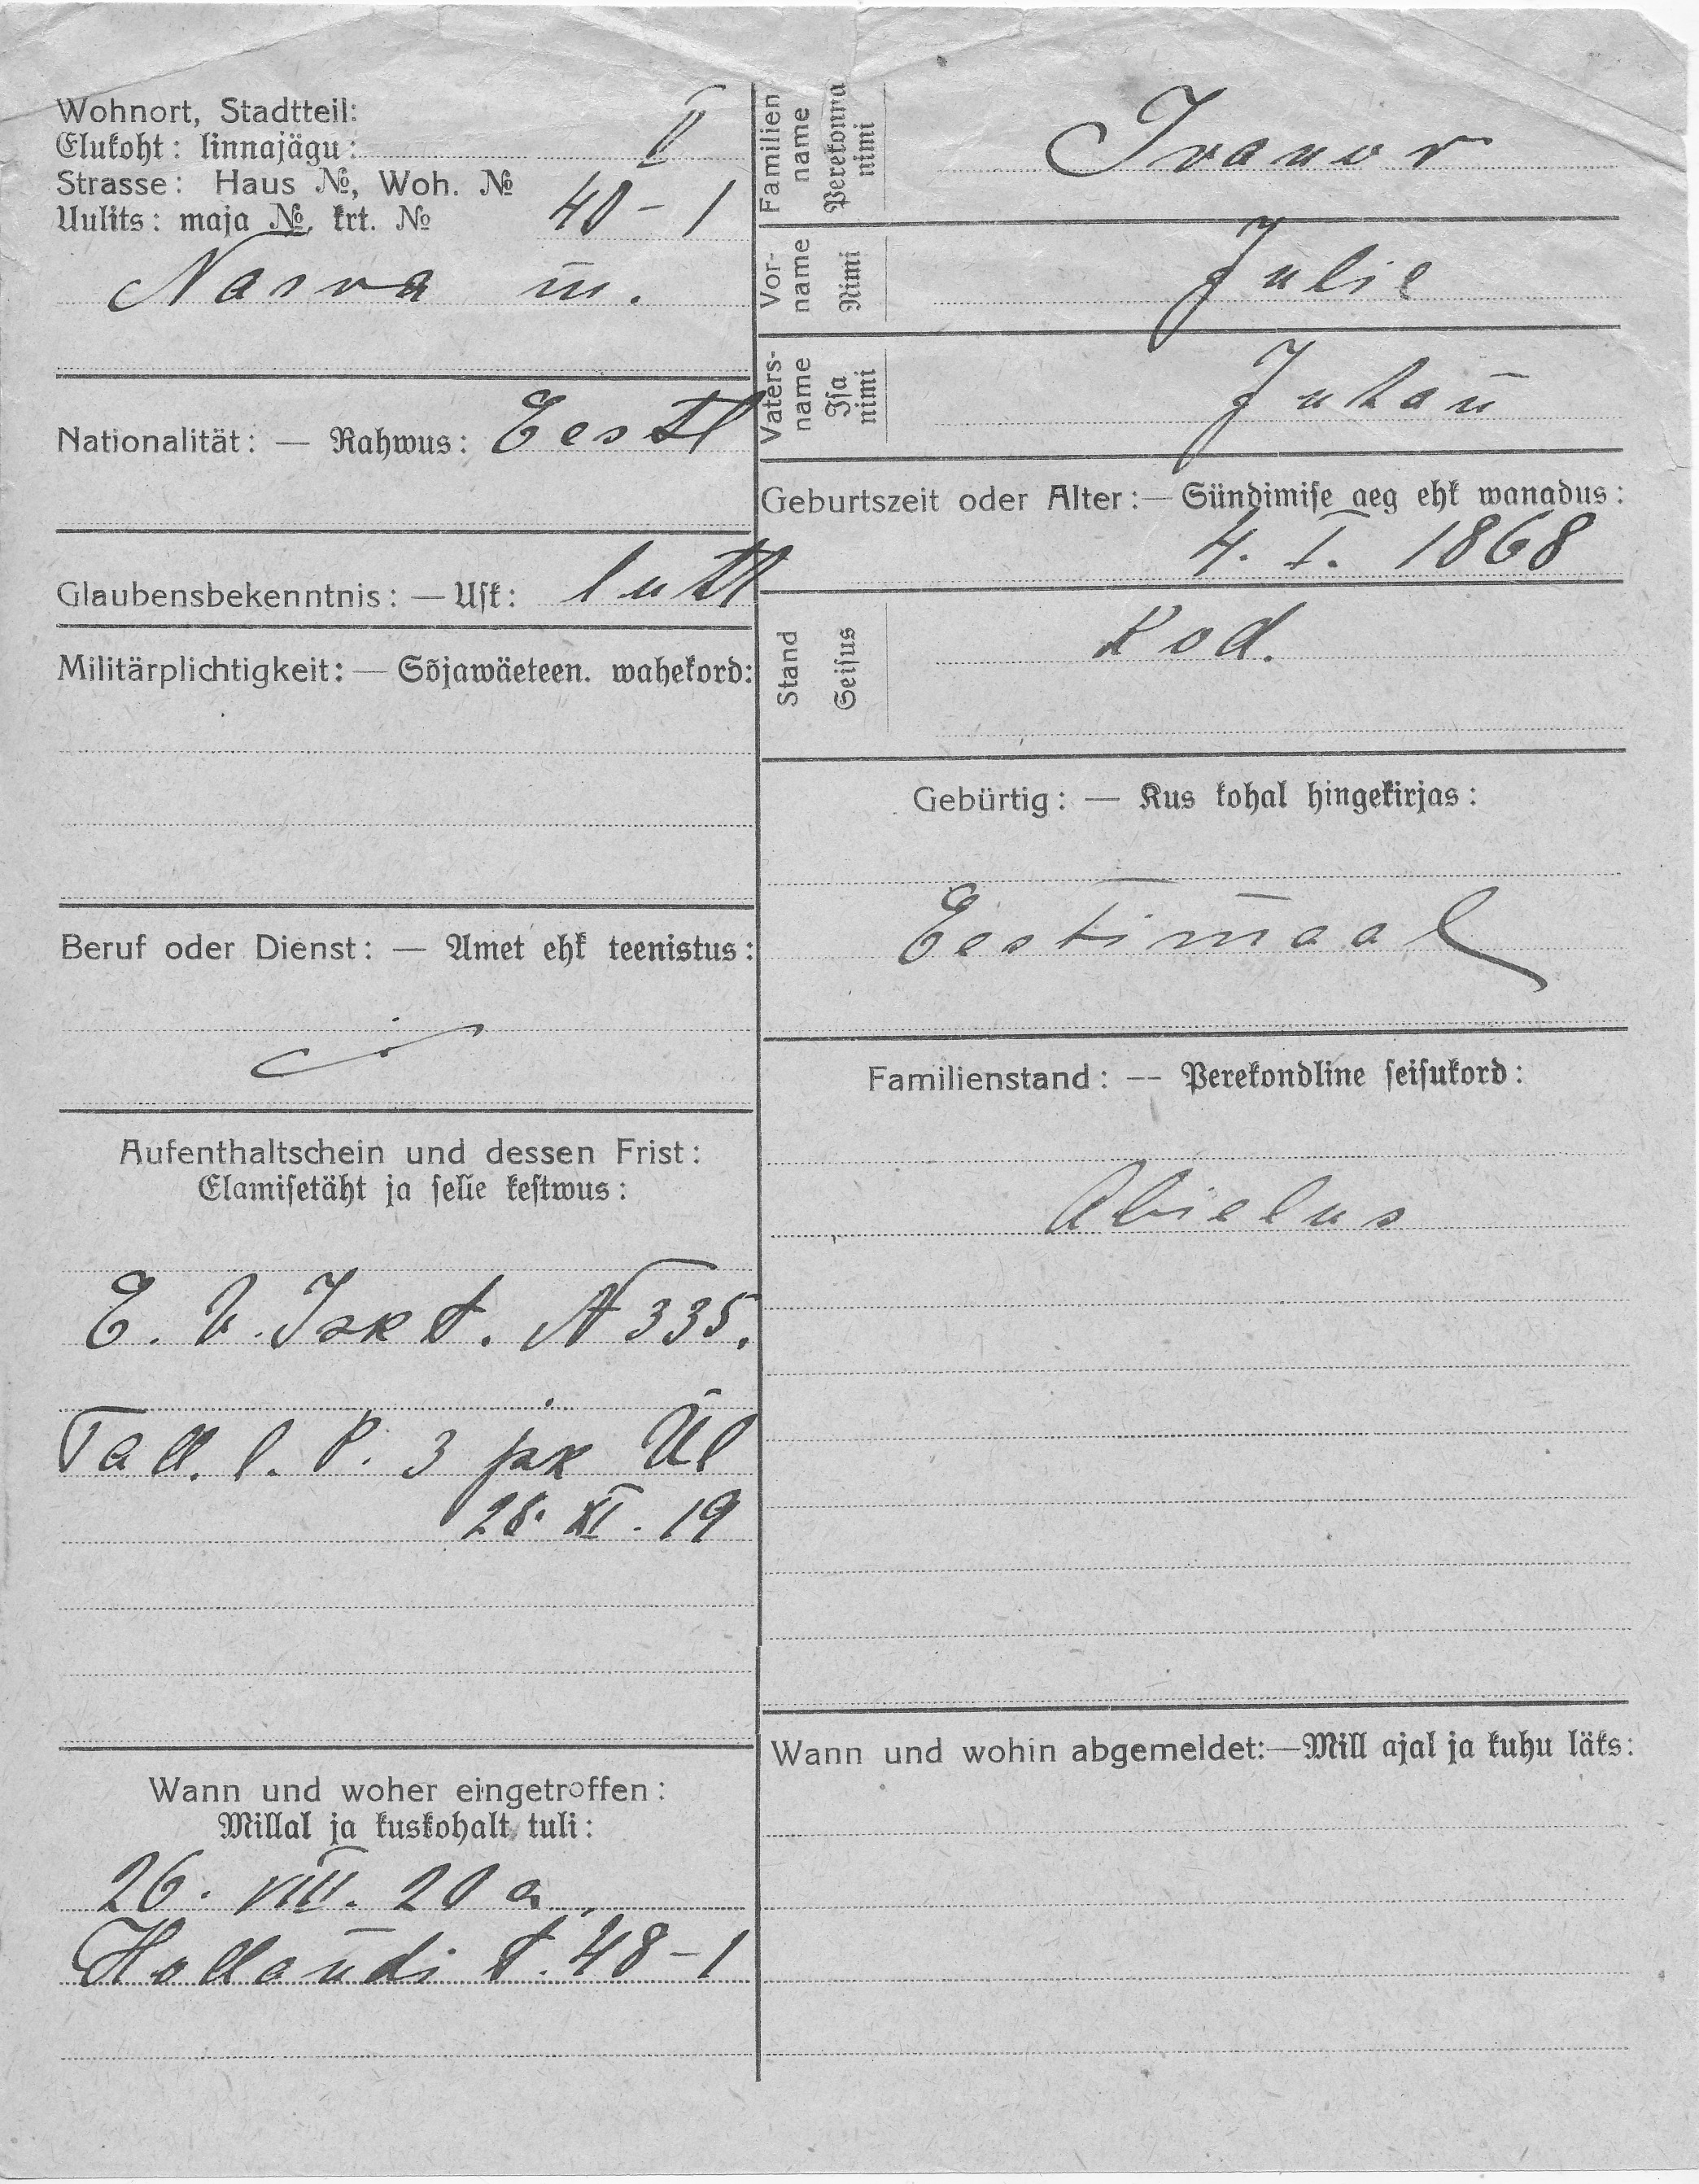 Wohnort, Stadtteil:
Elukoht: linnajägu: II
Strasse: Haus №, Woh. №
Uulits: maja №, krt. № 40-1
Narva m.
Nationalität: — Rahwus: Eestl
Glaubensbekenntnis: — Usk: luth
Militärplichtigkeit: — Sõjawäeteen. wahekord:
Beruf oder Dienst: — Amet ehk teenistus:
Aufenthaltschein und dessen Frist:
Elamisetäht ja selle kestwus:
E. V. Isk t. N 335.
Tall. l. P. 3 jsk Ül
28. XI. 19
Wann und woher eingetroffen:
Millal ja kuskohalt tuli:
26. VIII. 20 a.
Hollandi t. 48-1
Familien name Perekonna nimi Ivanov
Vor- name Nimi Julie
Vaters- name Isa nimi Juhan
Geburtszeit oder Alter: — Sündimise aeg ehk wanadus:
4. I. 1868
Stand Seisus Kod.
Gebürtig: — Kus kohal hingekirjas:
Eestimaal
Familienstand: — Perekondline seisukord:
Abielus
Wann und wohin abgemeldet: — Mill ajal ja kuhu läks: